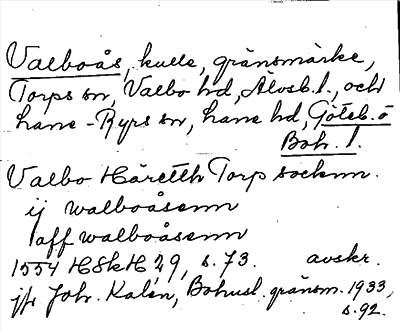 Valboås, kulle, gränsmärke,
Torps sn, Valbo hd, Älvsb. l., och
Lane-Ryrs sn, Lane hd, Göteb. o
Boh. l.
Valbo Häretth Torp socknn.
ij walboåsenn
aff walboåsenn
1554 HSkH 29, s. 73. avskr.
jfr Joh. Kalén, Bohusl. gränsm. 1933,
s. 92.